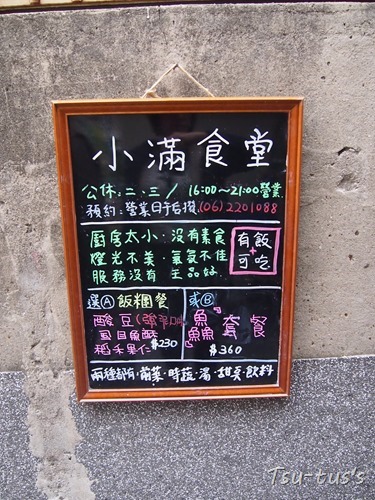 小滿食堂
公休:二、三/ 16:00~21:00營業
預約:營業日午后撥(06)2201088
厨房太小·沒有素食
燈光不美·氣氛不佳
服務沒有 主品好
有飯
+
可吃
選Ⓐ飯糰餐
酸豆
虱目魚酥
稻禾果仁 $230
或Ⓑ
『魚鱻』套餐
$360
兩種都有·前菜·時蔬·湯·甜点·飲料
Tsu-tus's